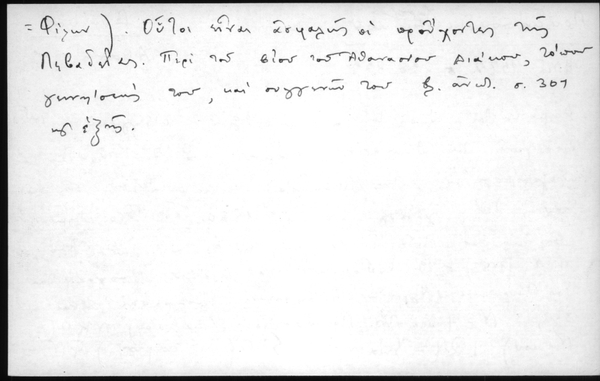 = Φίλων). Οὗτοι εἶναι ἀσφαλῶς οἱ προὔχοντες τῆς
Λεβαδείας. Περὶ τοῦ βίου τοῦ Ἀθανασίου Διάκου, τόπου
γεννήσεώς του, καὶ συγγενῶν του βλ. ἀνωτ. σ. 301
κ ἑξῆς.